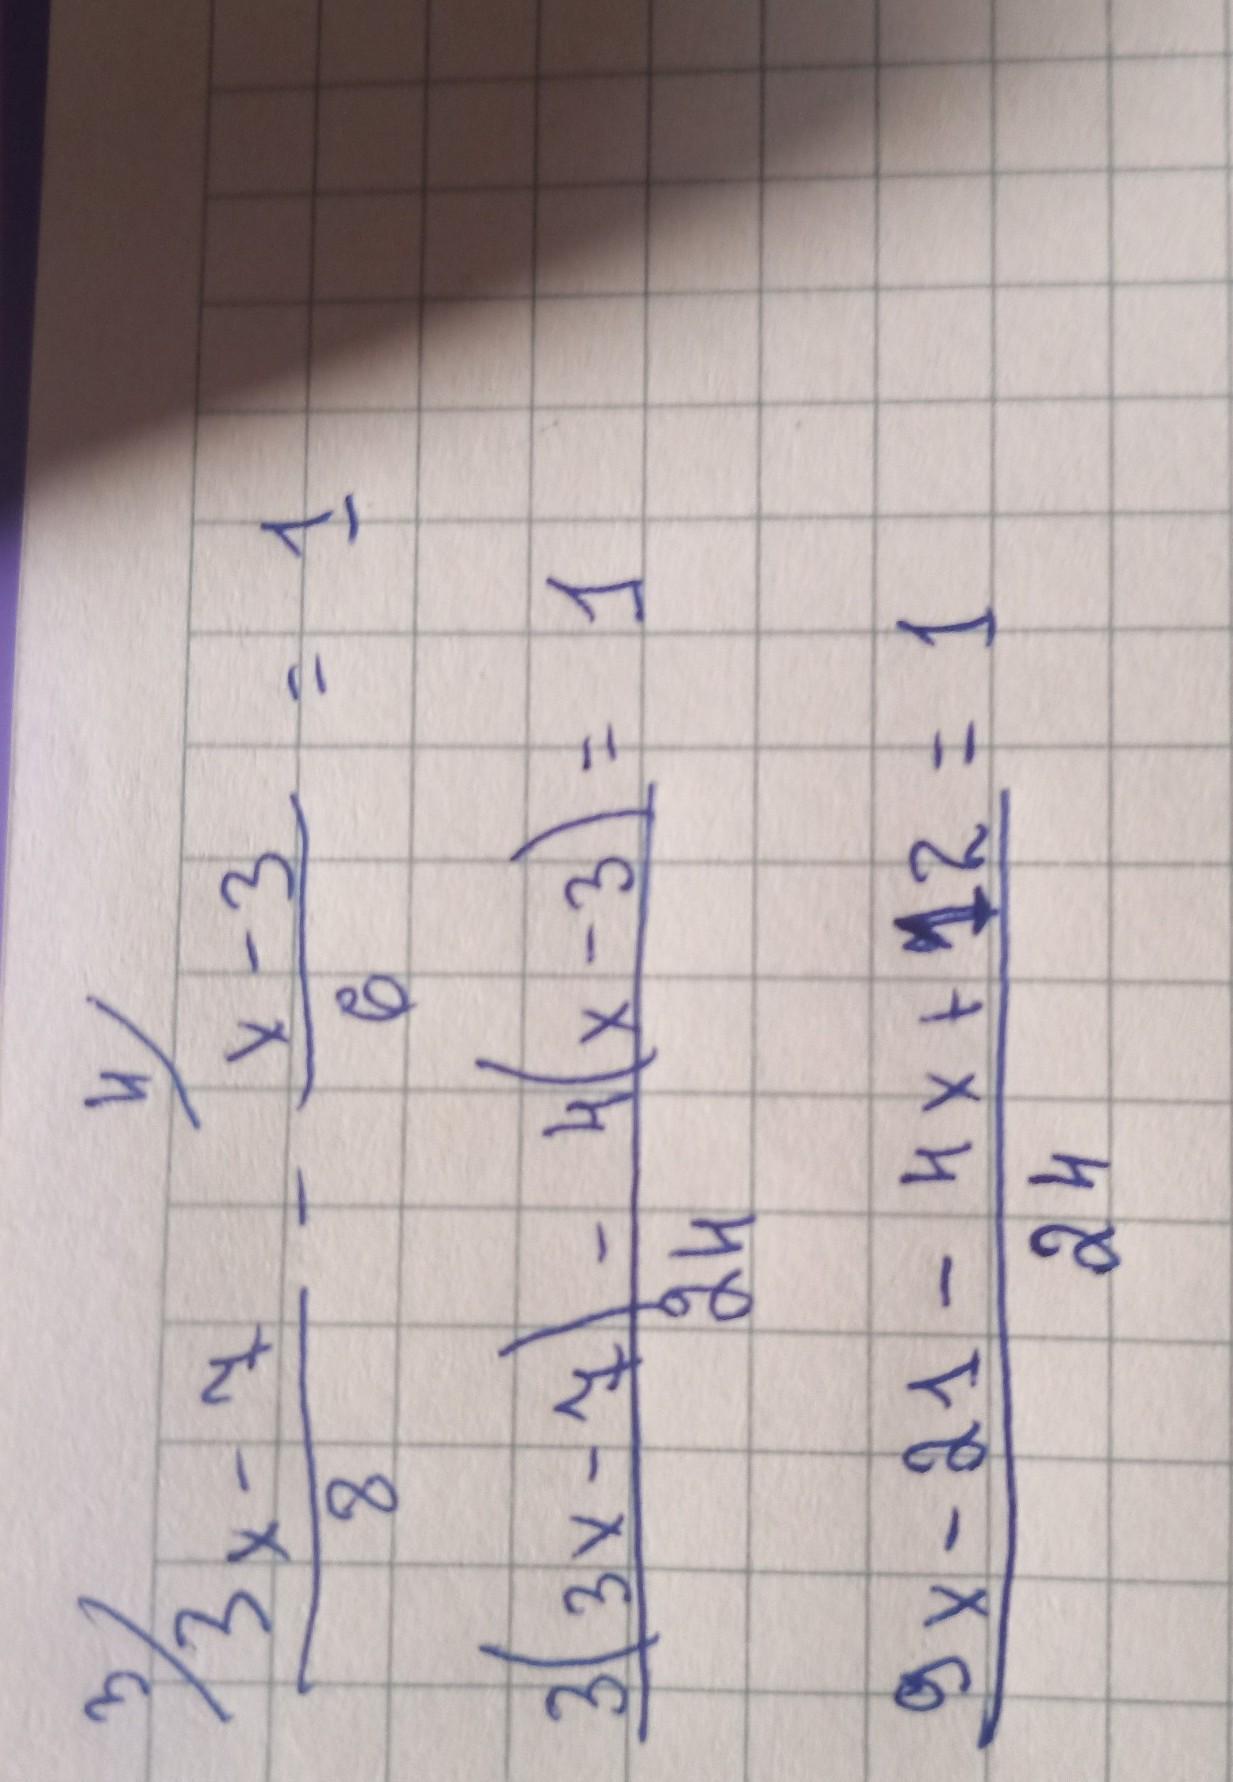 3/ 4/
3x - 7 / 8 - x - 3 / 6 = 1
3(3x - 7) - 4(x - 3) / 24 = 1
9x - 21 - 4x + 12 / 24 = 1